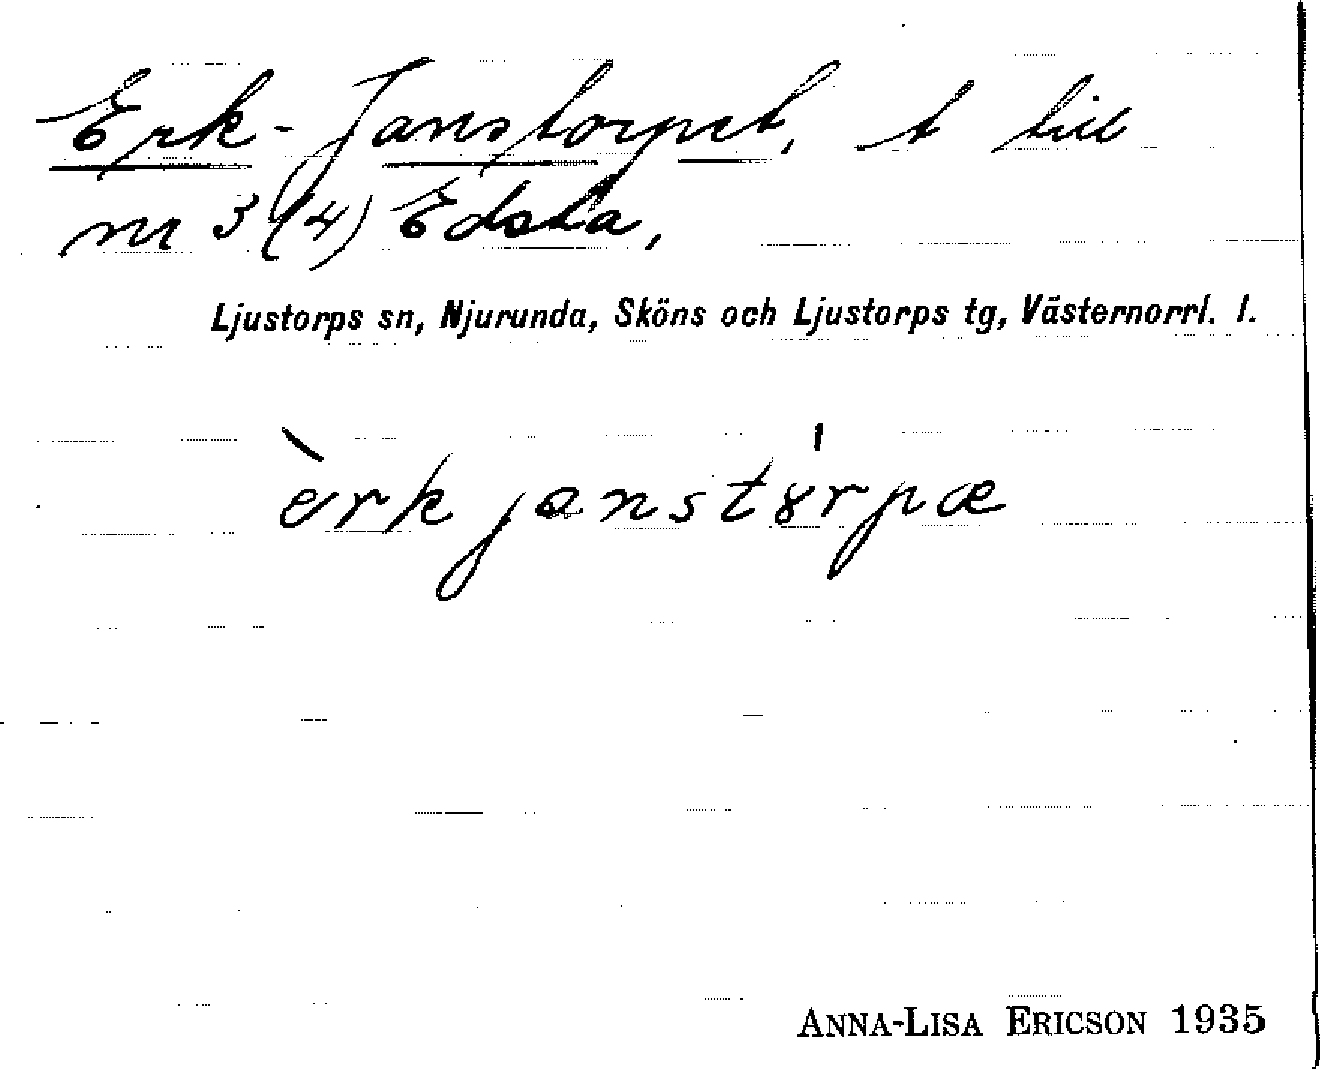 Erk-Janstorpet, t till
nr 3 (4) Edsta,
Ljustorps sn, Njurunda, Sköns och Ljustorps tg, Västernorrl. l.
ærk janstɤrpæ
ANNA-LISA ERICSON 1935